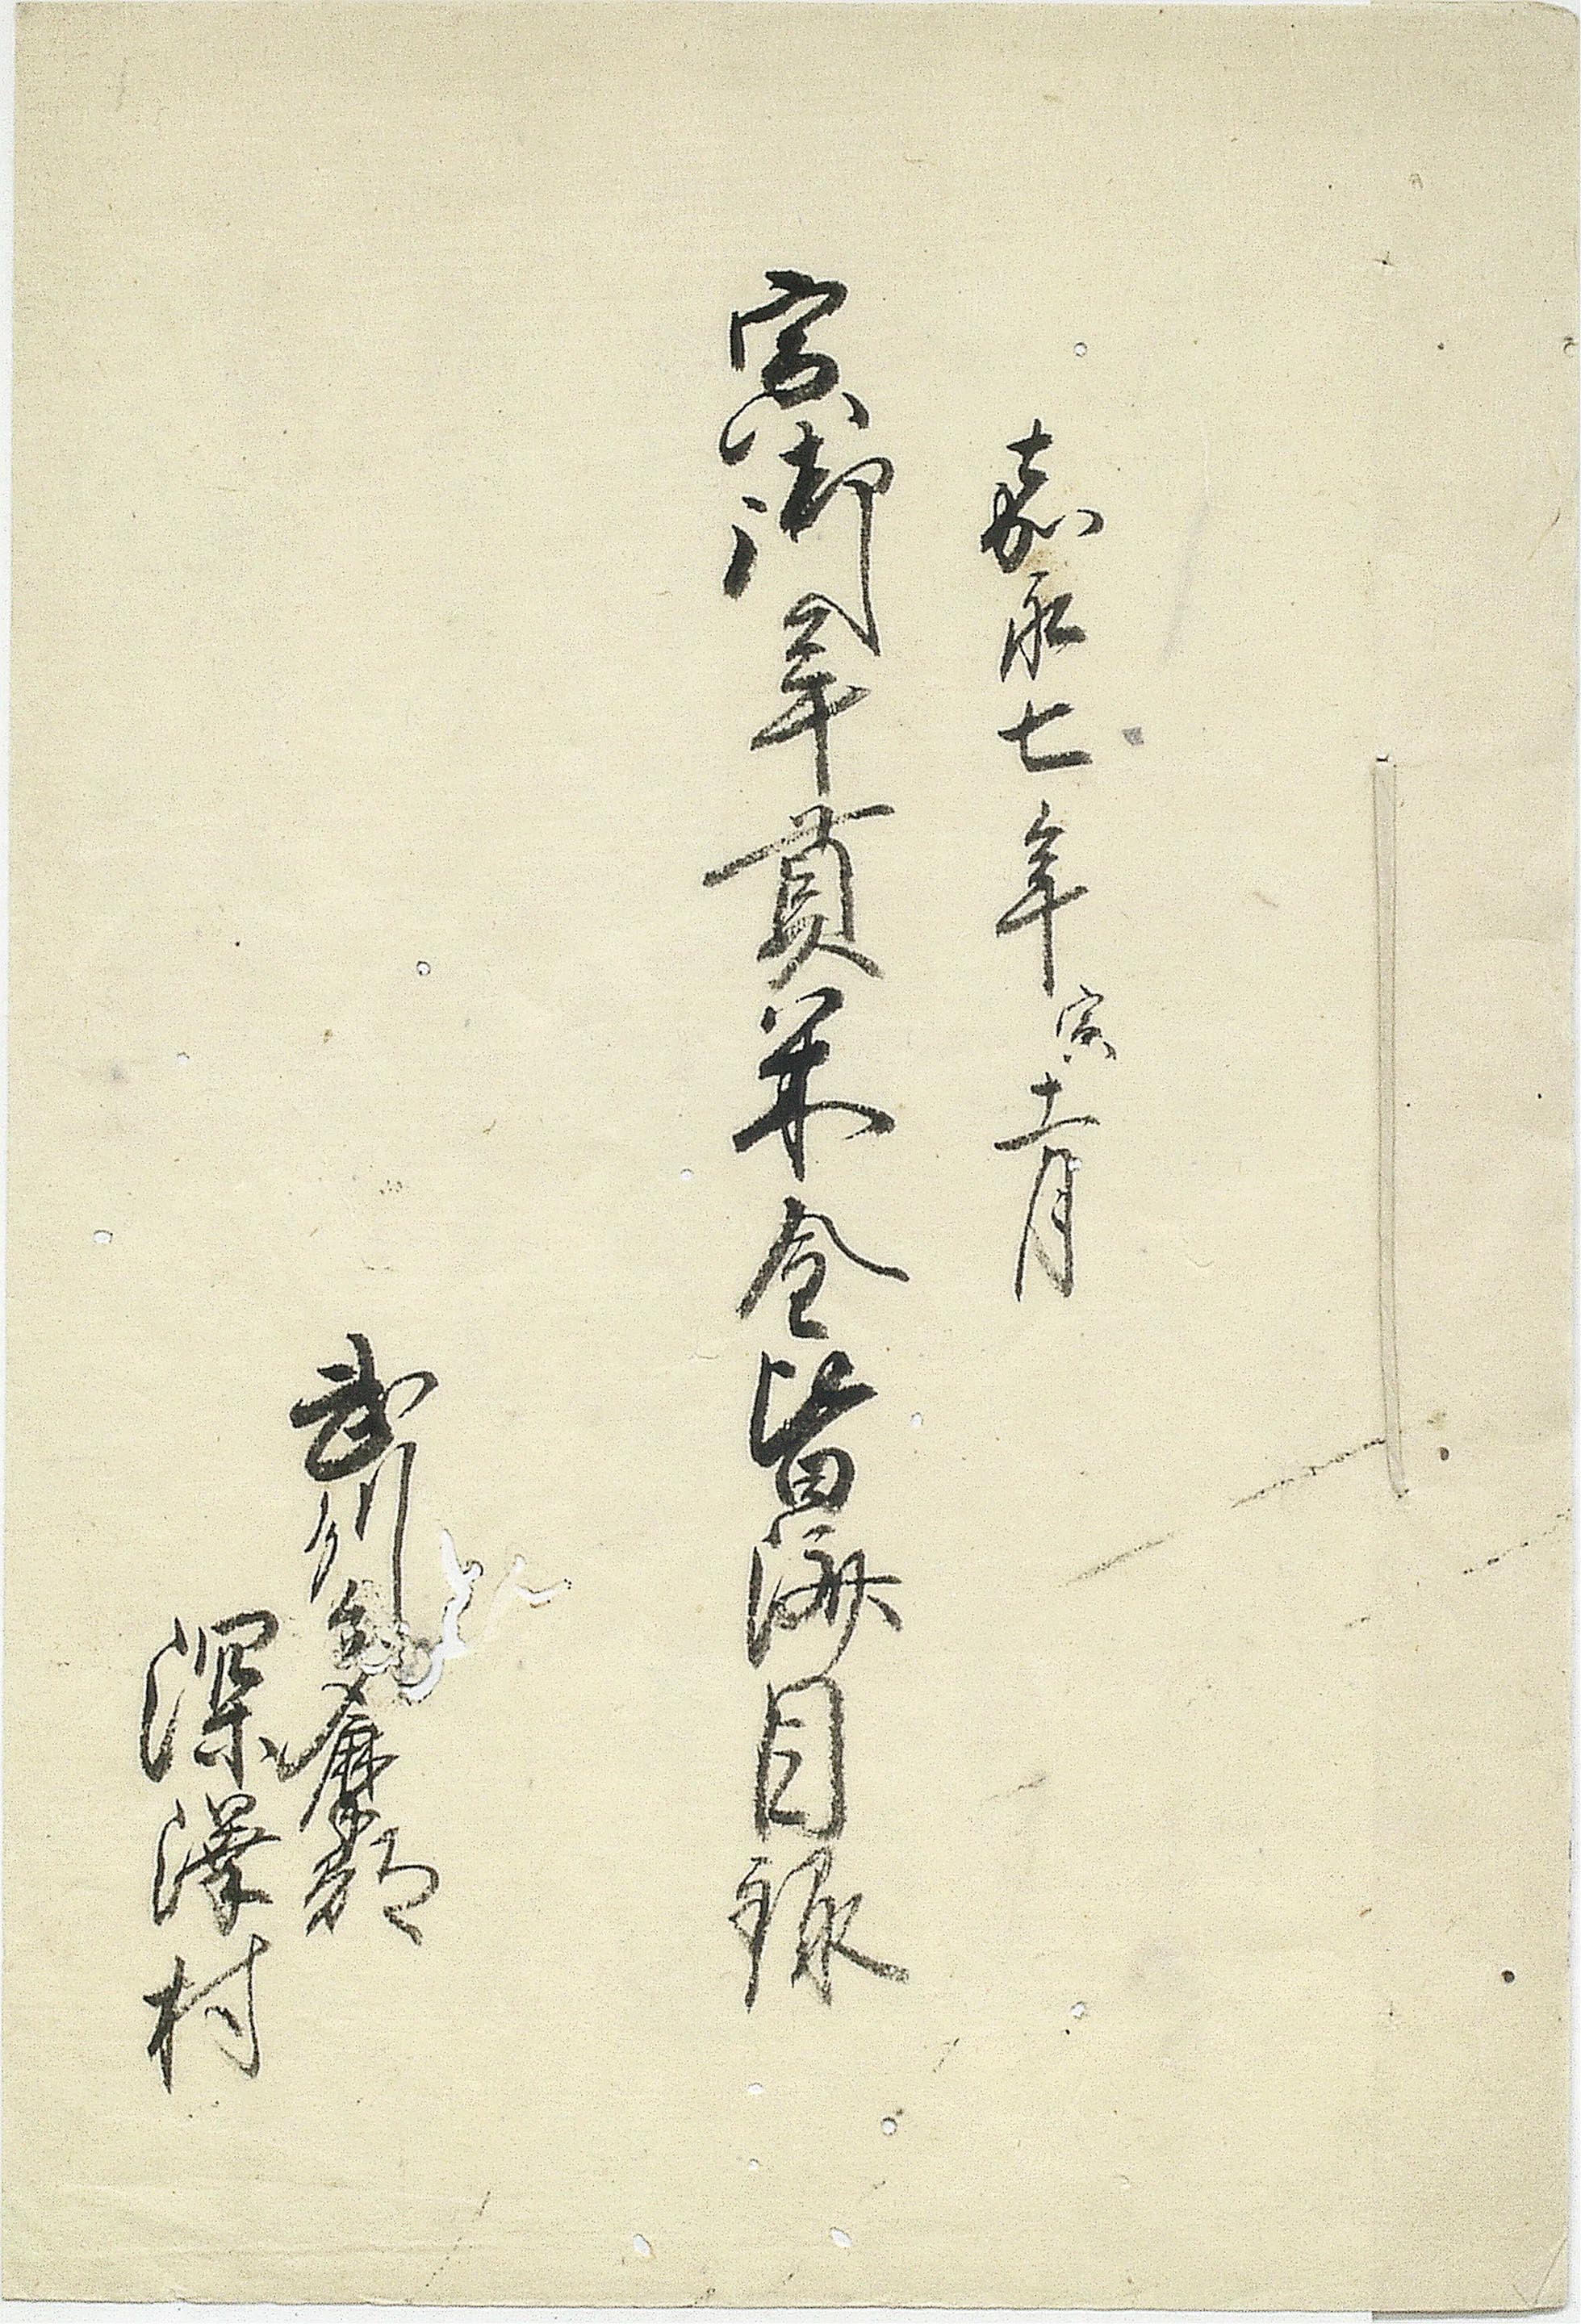 嘉永七年寅十一月
寅御年貢米金皆済目録
武州多摩郡
深澤村